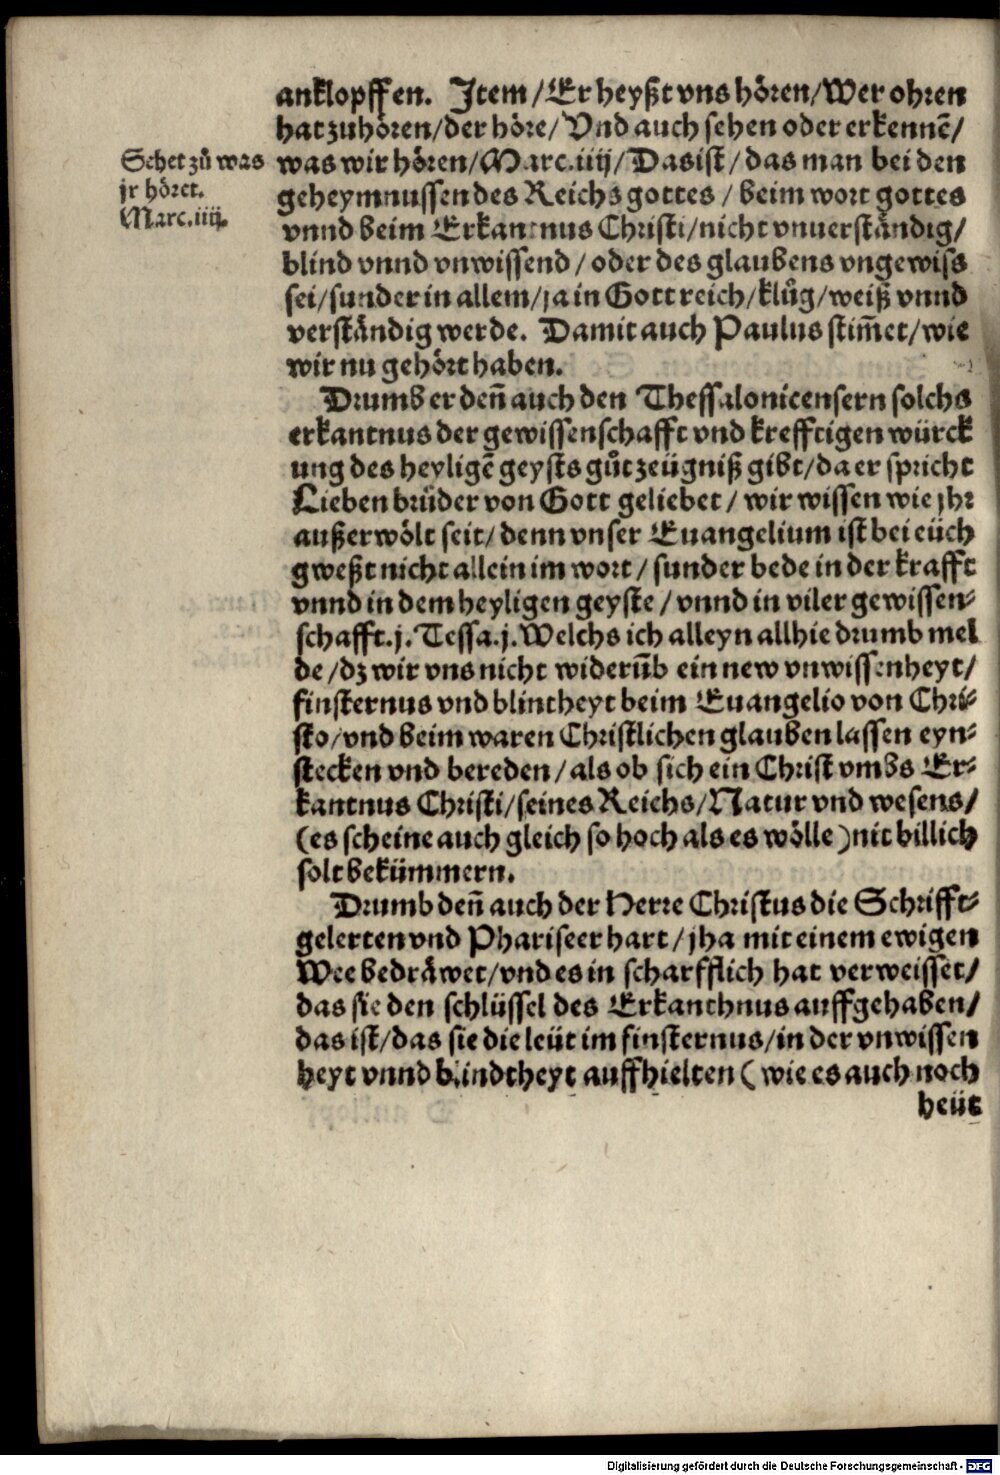 anklopffen. Item/Er heyßt vns hören/Wer ohren
hat zuhören/der höre/Vnd auch sehen oder erkennẽ/
Sehet zů was
jr höret.
Marc.iiij.
was wir hören/Marc.iiij/Das ist/das man bei den
geheymnussen des Reichs gottes/beim wort gottes
vnnd beim Erkantnus Christi/nicht vnuerständig/
blind vnnd vnwissend/oder des glaubens vngewiss
sei/sunder in allem/ja in Gott reich/klůg/weiß vnnd
verständig werde. Damit auch Paulus stim̃et/wie
wir nu gehört haben.
Drumb er deñ auch den Thessalonicensern solchs
erkantnus der gewissenschafft vnd krefftigen würck
ung des heyligẽ geysts gůt zeügniß gibt/da er spricht
Lieben brüder von Gott geliebet/wir wissen wie jhr
außerwölt seit/denn vnser Euangelium ist bei eüch
gweßt nicht allein im wort/sunder bede in der krafft
vnnd in dem heyligen geyste/vnnd in viler gewissen⸗
schafft.j.Tessa.j.Welchs ich alleyn allhie drumb mel
de/dz wir vns nicht widerũb ein new vnwissenheyt/
finsternus vnd blintheyt beim Euangelio von Chri⸗
sto/vnd beim waren Christlichen glauben lassen eyn⸗
stecken vnd bereden/als ob sich ein Christ vmbs Er⸗
kantnus Christi/seines Reichs/Natur vnd wesens/
(es scheine auch gleich so hoch als es wölle)nit billich
solt bekümmern.
Drumb deñ auch der Herre Christus die Schrifft⸗
gelerten vnd Phariseer hart/jha mit einem ewigen
Wee bedräwet/vnd es in scharfflich hat verweisset/
das sie den schlüssel des Erkanthnus auffgehaben/
das ist/das sie die leüt im finsternus/in der vnwissen
heyt vnnd blindtheyt auffhielten(wie es auch noch
heüt
Digitalisierung gefördert durch die Deutsche Forschungsgemeinschaft - DFG